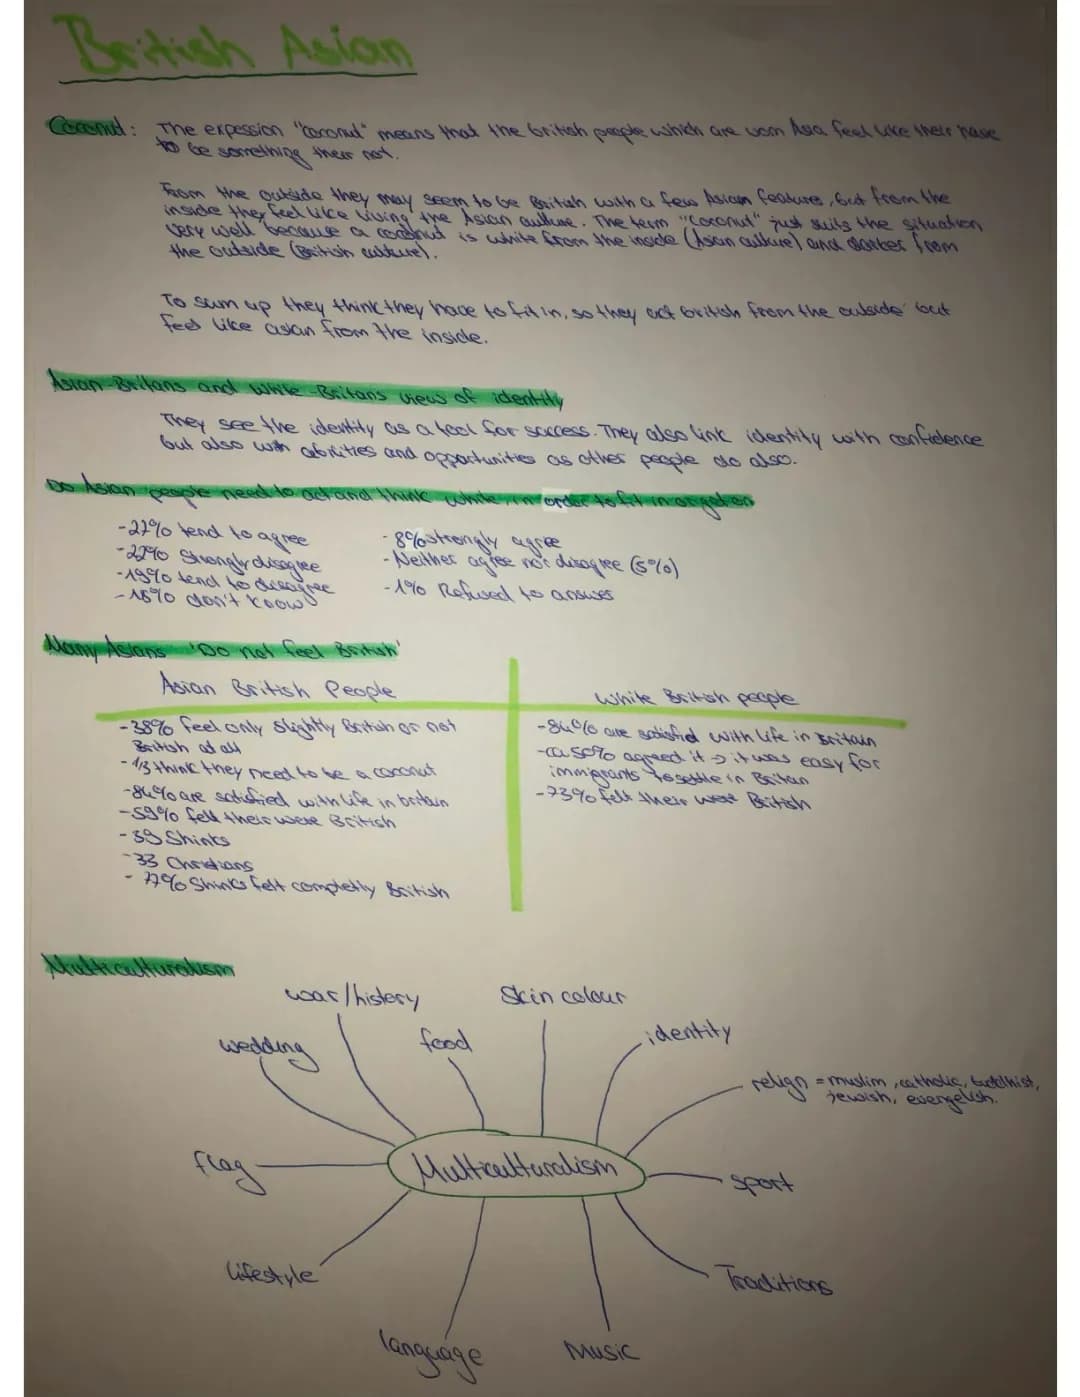 British Asian
Coconut: The expession "coconut" means that the british people which are vom Asia feel like their have
to be something their not.
From the outside they may seem to be British with a few Asian features, but from the
inside they feel like living the Asian culture. The term "Coconut" just suits the situation
very well because a coconut is white from the inside (Asian culture) and darker from
the outside (British culture).
To sum up they think they have to fit in, so they act british from the outside but
feel like asian from the inside.
Asian-Britans and White-Britans view of identity
They see the identity as a tool for success. They also link identity with confidence
but also with abilities and opportunities as other people do also.
Do Asian people need to act and think white in order to fit in or get on
- tend to agree - 8% strongly agree
- Strongly disagree - Neither agree nor disagree (5%)
-19% tend to disagree - 1% Refused to answer
- don't know
Many Asians 'Do not feel British'
Asian British People White British people
-38% feel only slightly British or not
British at all
- 1/3 think they need to be a coconut
-84% are satisfied with life in britain
-59% felt their were British
- 39 Shinks
- 33 Christians
- 77% Shinks felt completly British
-84% are satisfied with life in Britain
-ca 50% agreed it → it was easy for
immigrants to settle in Britan
-73% felt their were British
Multiculturalism
war/history Skin colour
wedding food identity
relign = muslim, catholic, buddhist,
jewish, evengelish.
flag Multiculturalism sport
lifestyle Traditions
language Music